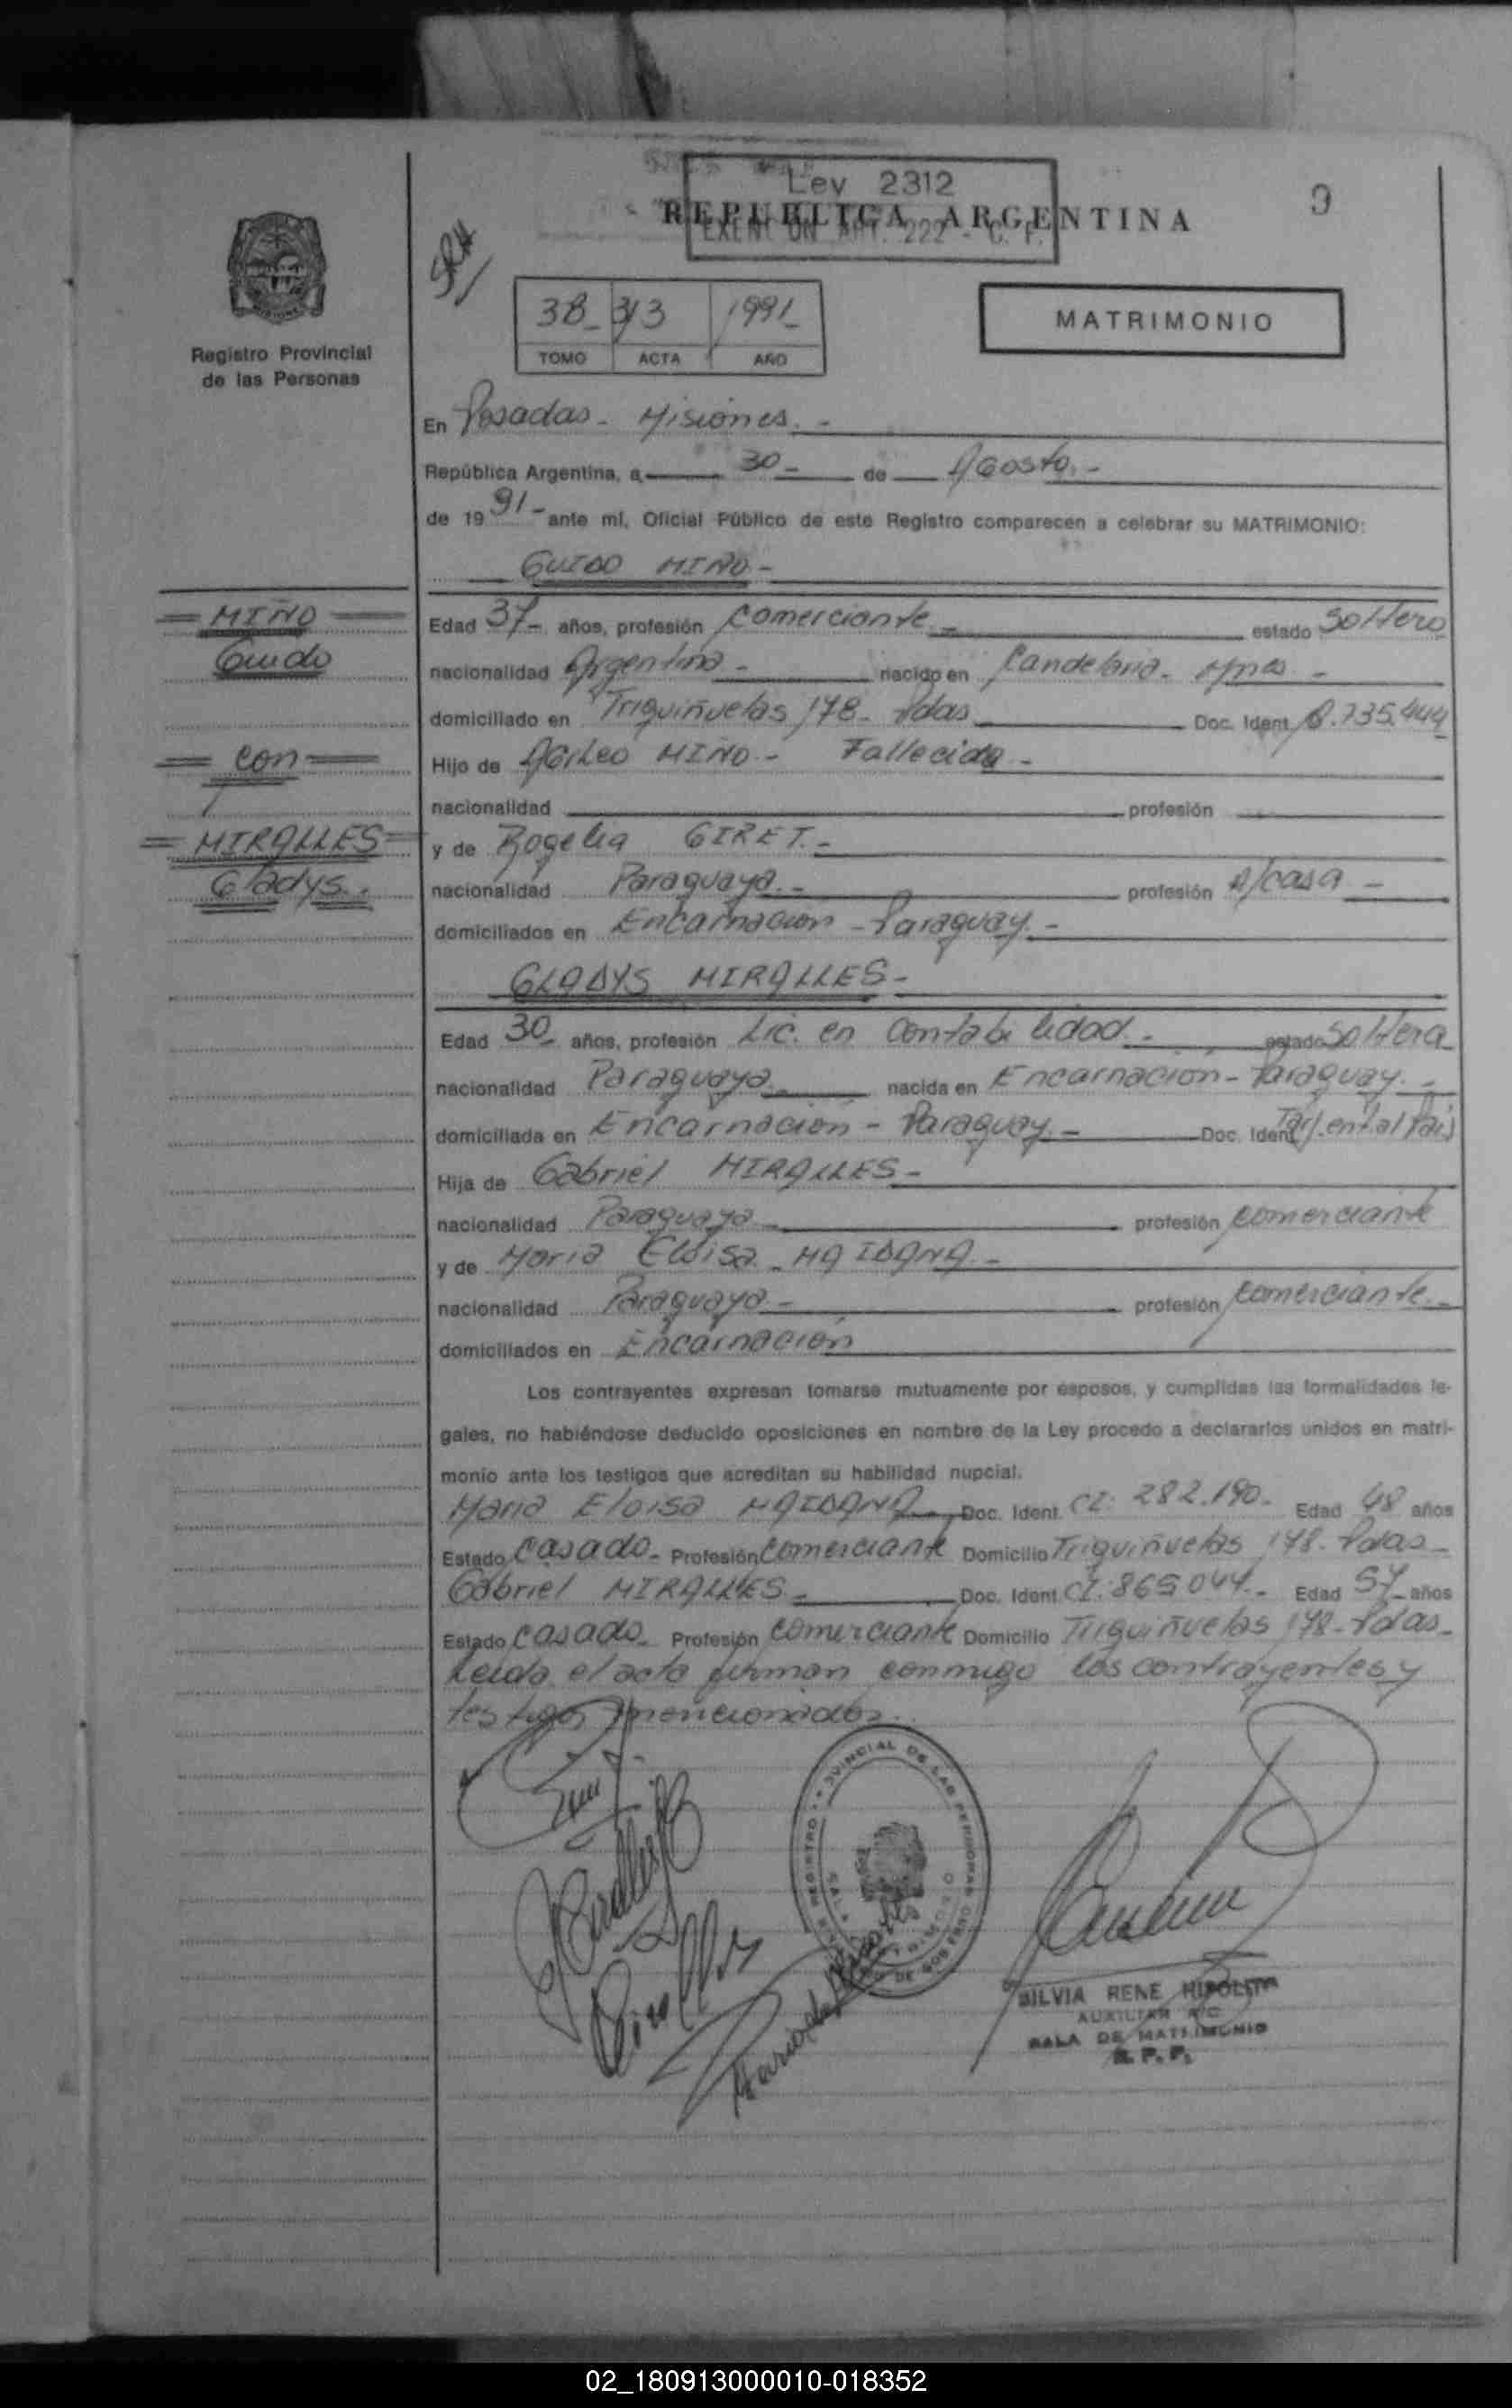 Ley 2312
REPUBLICA ARGENTINA
EXENCION ART. 222 - C. F.
9
38_ 313 1991_
TOMO ACTA AÑO
MATRIMONIO
Registro Provincial
de las Personas
En Posadas - Misiones. -
República Argentina, a 30 - de Agosto. -
de 19 91 - ante mí, Oficial Público de este Registro comparecen a celebrar su MATRIMONIO:
GUIDO MIÑO. -
= MIÑO =
Guido
= con =
= MIRALLES =
Gladys. -
Edad 37 - años, profesión Comerciante - estado Soltero
nacionalidad Argentina - nacido en Candelaria - Mnes. -
domiciliado en Triguiñuelas 178 - Pdas Doc. Ident. 8.735.444
Hijo de MIÑO. - Fallecido -
nacionalidad profesión
y de Rogelia GIRET. -
nacionalidad Paraguaya. - profesión A/casa -
domiciliados en Encarnación - Paraguay. -
GLADYS MIRALLES -
Edad 30 - años, profesión Lic. en Contabilidad. - estado Soltera
nacionalidad Paraguaya - nacida en Encarnación - Paraguay. -
domiciliada en Encarnación - Paraguay. - Doc. Ident.
Hija de Gabriel MIRALLES -
nacionalidad Paraguaya profesión comerciante
y de Maria Eloisa - MAIDANA -
nacionalidad Paraguaya - profesión comerciante. -
domiciliados en Encarnación
Los contrayentes expresan tomarse mutuamente por esposos, y cumplidas las formalidades le-
gales, no habiéndose deducido oposiciones en nombre de la Ley procedo a declararlos unidos en matri-
monio ante los testigos que acreditan su habilidad nupcial.
Maria Eloisa MAIDANA Doc. Ident. CI: 282.190 - Edad 48 años
Estado Casado - Profesión comerciante Domicilio Triguiñuelas 178 - Pdas -
Gabriel MIRALLES - Doc. Ident. CI: 865044 - Edad 57 - años
Estado Casado - Profesión comerciante Domicilio Triguiñuelas 178 - Pdas -
Leida el acta firman conmigo los contrayentes y
testigos mencionados.
SILVIA RENE HIPOLITA
AUXILIAR A/C
SALA DE MATRIMONIO
R. P. P.
02_180913000010-018352